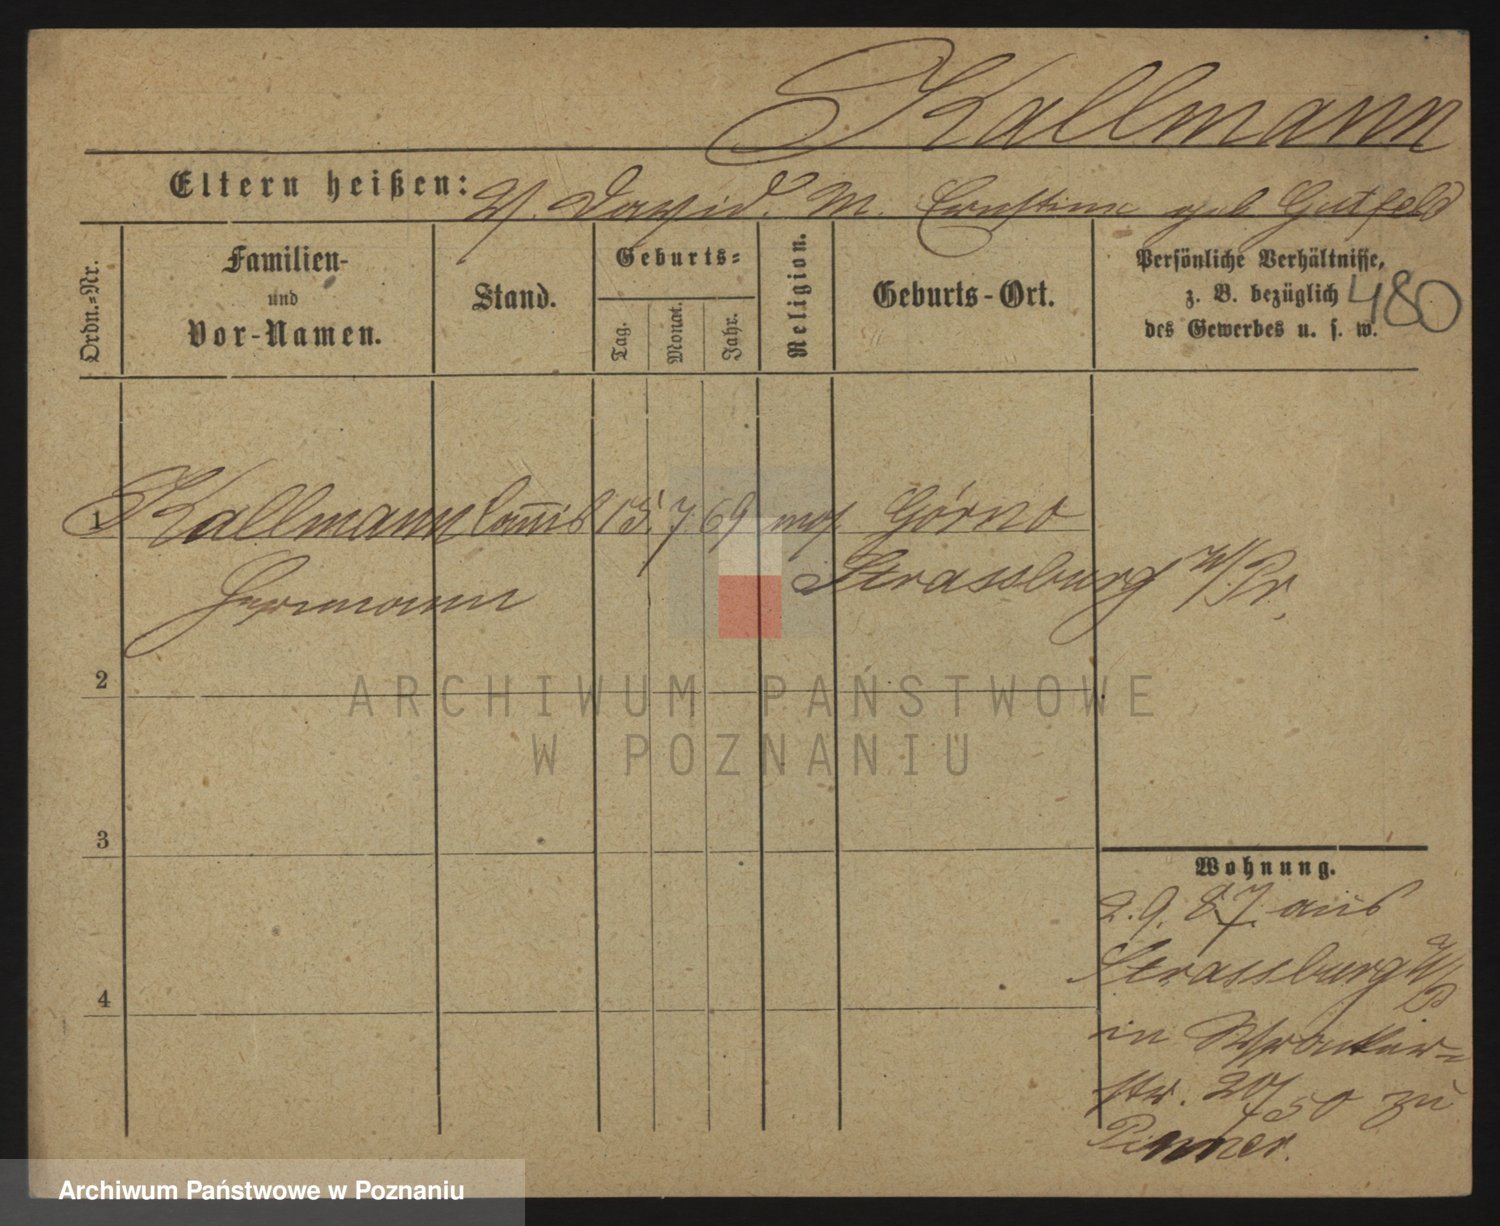 Kallmann
Eltern heißen: V. David. M. Ernstine geb Gutfeld
Ordn.=Nr.
Familien-
und
Vor-Namen.
Stand.
Geburts=
Tag.
Monat.
Jahr.
Religion.
Geburts-Ort.
Persönliche Verhältnisse,
z. B. bezüglich
des Gewerbes u. s. w.
480
1 Kallmann Commis 15. 7 69 mos Górno
Hermann Strassburg W/Pr.
2
3
4
Wohnung.
2. 9. 87. aus
Strassburg W/P
in Wronker=
str. 20/50 zu
Pinner.
ARCHIWUM PAŃSTWOWE
W POZNANIU
Archiwum Państwowe w Poznaniu